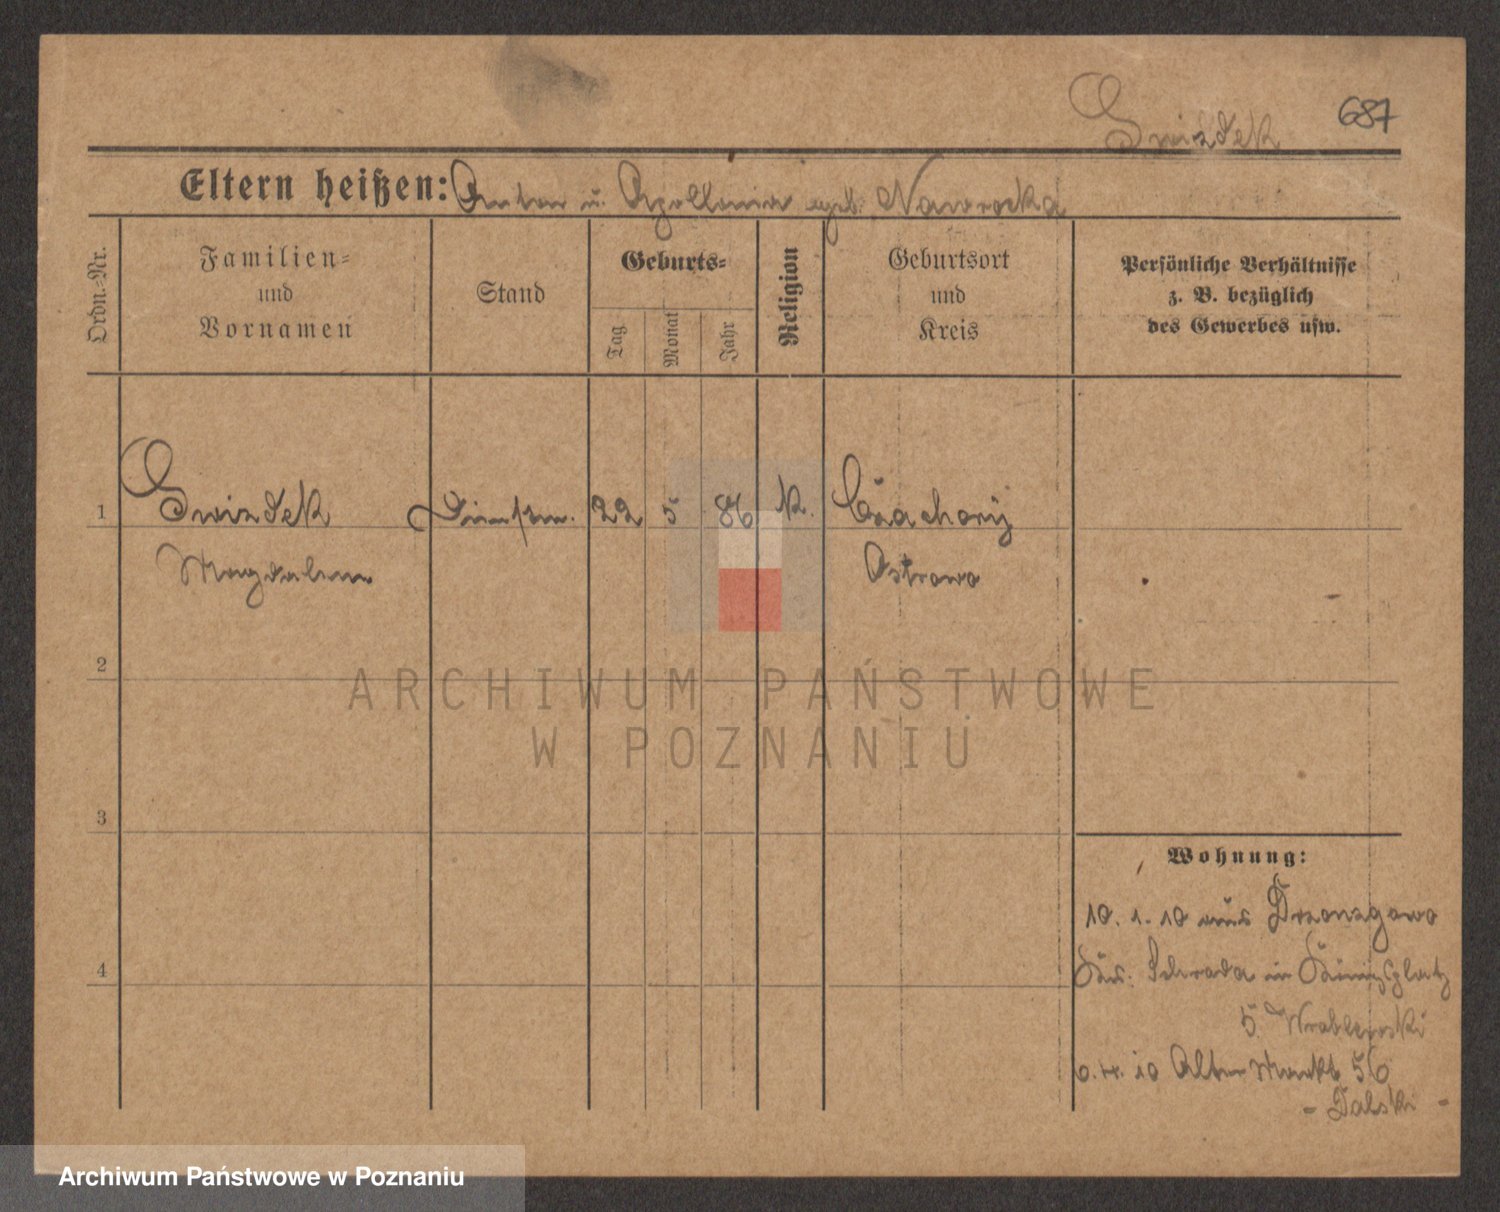 Swizdek 687
Eltern heißen: Anton u. Apollonia geb. Nawrocka
Ordn.-Nr.
Familien-
und
Vornamen
Stand
Geburts-
Tag
Monat
Jahr
Religion
Geburtsort
und
Kreis
Persönliche Verhältnisse
z. B. bezüglich
des Gewerbes usw.
1 Swizdek 22 5 86 K. Czachory
Magdalena Ostrowo
2
3
4
Wohnung:
10. 1. 10 aus
Krs. Schroda in Königsplatz
5 Wroblewski
6. 4. 10 Alter Markt 56
- Dalski -
ARCHIWUM PAŃSTWOWE
W POZNANIU
Archiwum Państwowe w Poznaniu